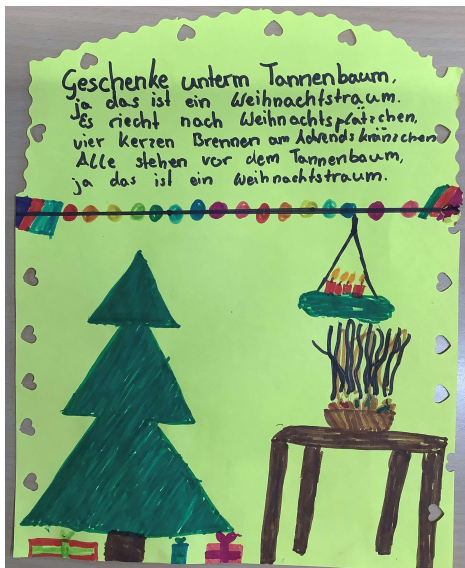 Geschenke unterm Tannenbaum,
ja das ist ein Weihnachtstraum.
Es riecht nach Weihnachtsplätzchen,
vier Kerzen Brennen am Adventskränzchen
Alle stehen vor dem Tannenbaum,
ja das ist ein Weihnachtstraum.